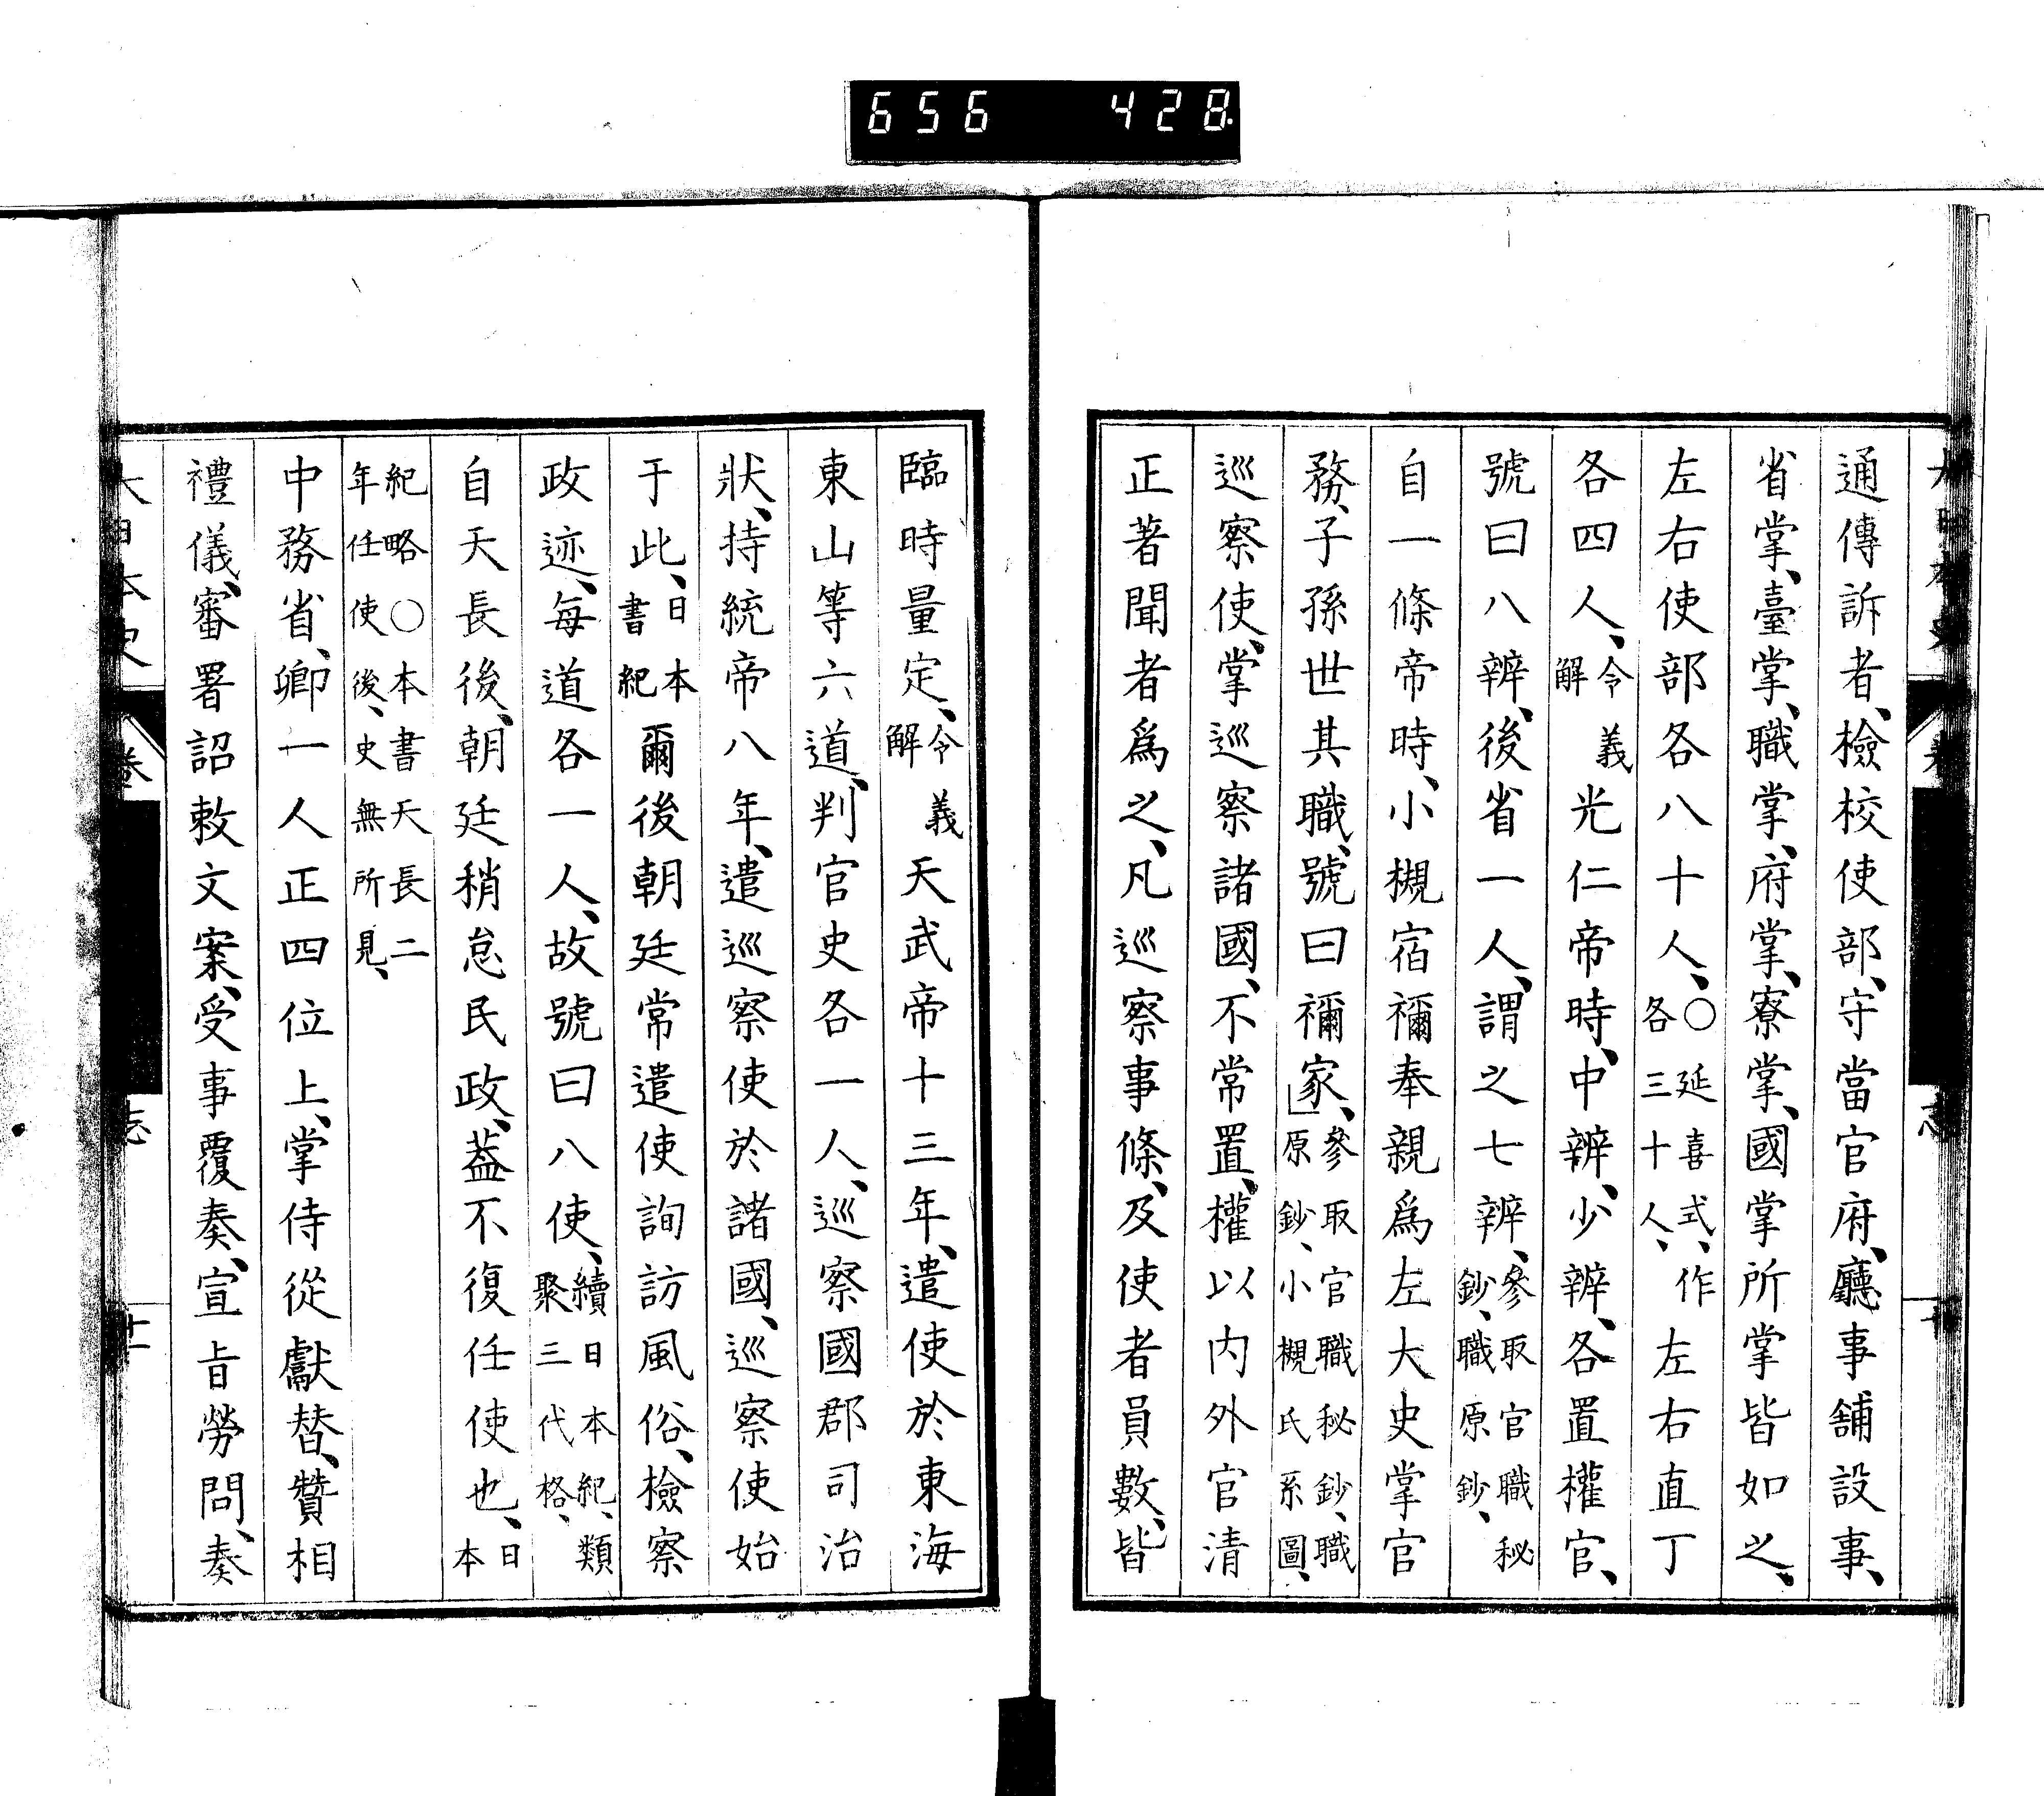 656 428
通傳訴者、檢校使部、守當官府、廳事舖設事、
省掌、臺掌、職掌、府掌、寮掌、國掌所掌皆如之、
左右使部各八十人、○延喜式、作各三十人、左右直丁
各四人、令義解光仁帝時、中辨、少辨、各置權官、
號曰八辨、後省一人、謂之七辨、參取官職秘鈔、職原鈔、
自一條帝時、小槻宿禰奉親爲左大史掌官
務、子孫世其職、號曰禰家」、參取官職秘鈔、職原鈔、小槻氏系圖、
巡察使、掌巡察諸國、不常置、權以内外官清
正著聞者爲之、凡巡察事條、及使者員數、皆
臨時量定、令義解天武帝十三年、遣使於東海
東山等六道、判官史各一人、巡察國郡司治
狀、持統帝八年、遣巡察使於諸國、巡察使始
于此、日本書紀爾後朝廷常遣使詢訪風俗、檢察
政迹、每道各一人、故號曰八使、續日本紀、類聚三代格、
自天長後、朝廷稍怠民政、蓋不復任使也、日本
紀略○本書天長二年任使後、史無所見、
中務省、卿一人正四位上、掌侍從獻替、贊相
禮儀、審署詔敕文案、受事覆奏、宣旨勞問、奏
大日本史 卷 志 十一